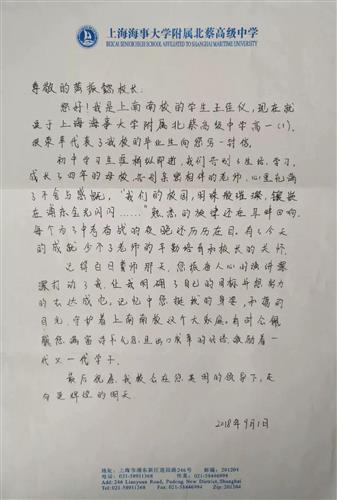 上海海事大学附属北蔡高级中学
BEICAI SENIOR HIGH SCHOOL AFFILIATED TO SHANGHAI MARITIME UNIVERSITY
尊敬的黄振懿校长:
您好!我是上南南校的学生王臣仪,现在就
读于上海海事大学附属北蔡高级中学高一(1),
很荣幸代表了我校的毕业生向您写一封信。
初中学习生涯稍纵即逝,我们告别了生活、学习、
成长了四年的母校,告别亲密相伴的老师,心里充满
了不舍与感慨,"我们的校园,明珠般璀璨,镶嵌
在浦东金光闪闪……"熟悉的旋律还在耳畔回响。
每个为了中考奋战的夜晚还历历在目,有了今天
的成就少不了老师的辛勤培育和校长的关怀。
记得百日宣誓那天,您振奋人心的演讲深
深打动了我,让我明确了自己的目标并想努力
的去达成它,记忆中您挺拔的身姿,和蔼的
目光,守护着上南南校这个大家庭。有时会佩
服您满富诗书气息,且出口成章的
一代又一代学子。
最后祝愿:我校会在您英明的领导下,走
向更辉煌的明天。
2018年9月1日
地址:上海市浦东新区莲园路246号 邮编:201204
电话:021-58911368 传真:021-58446994
Add:246 Lianyuan Road, Pudong New District, Shanghai
Tel:021-58911368 Fax:021-58446994 Zip:201204